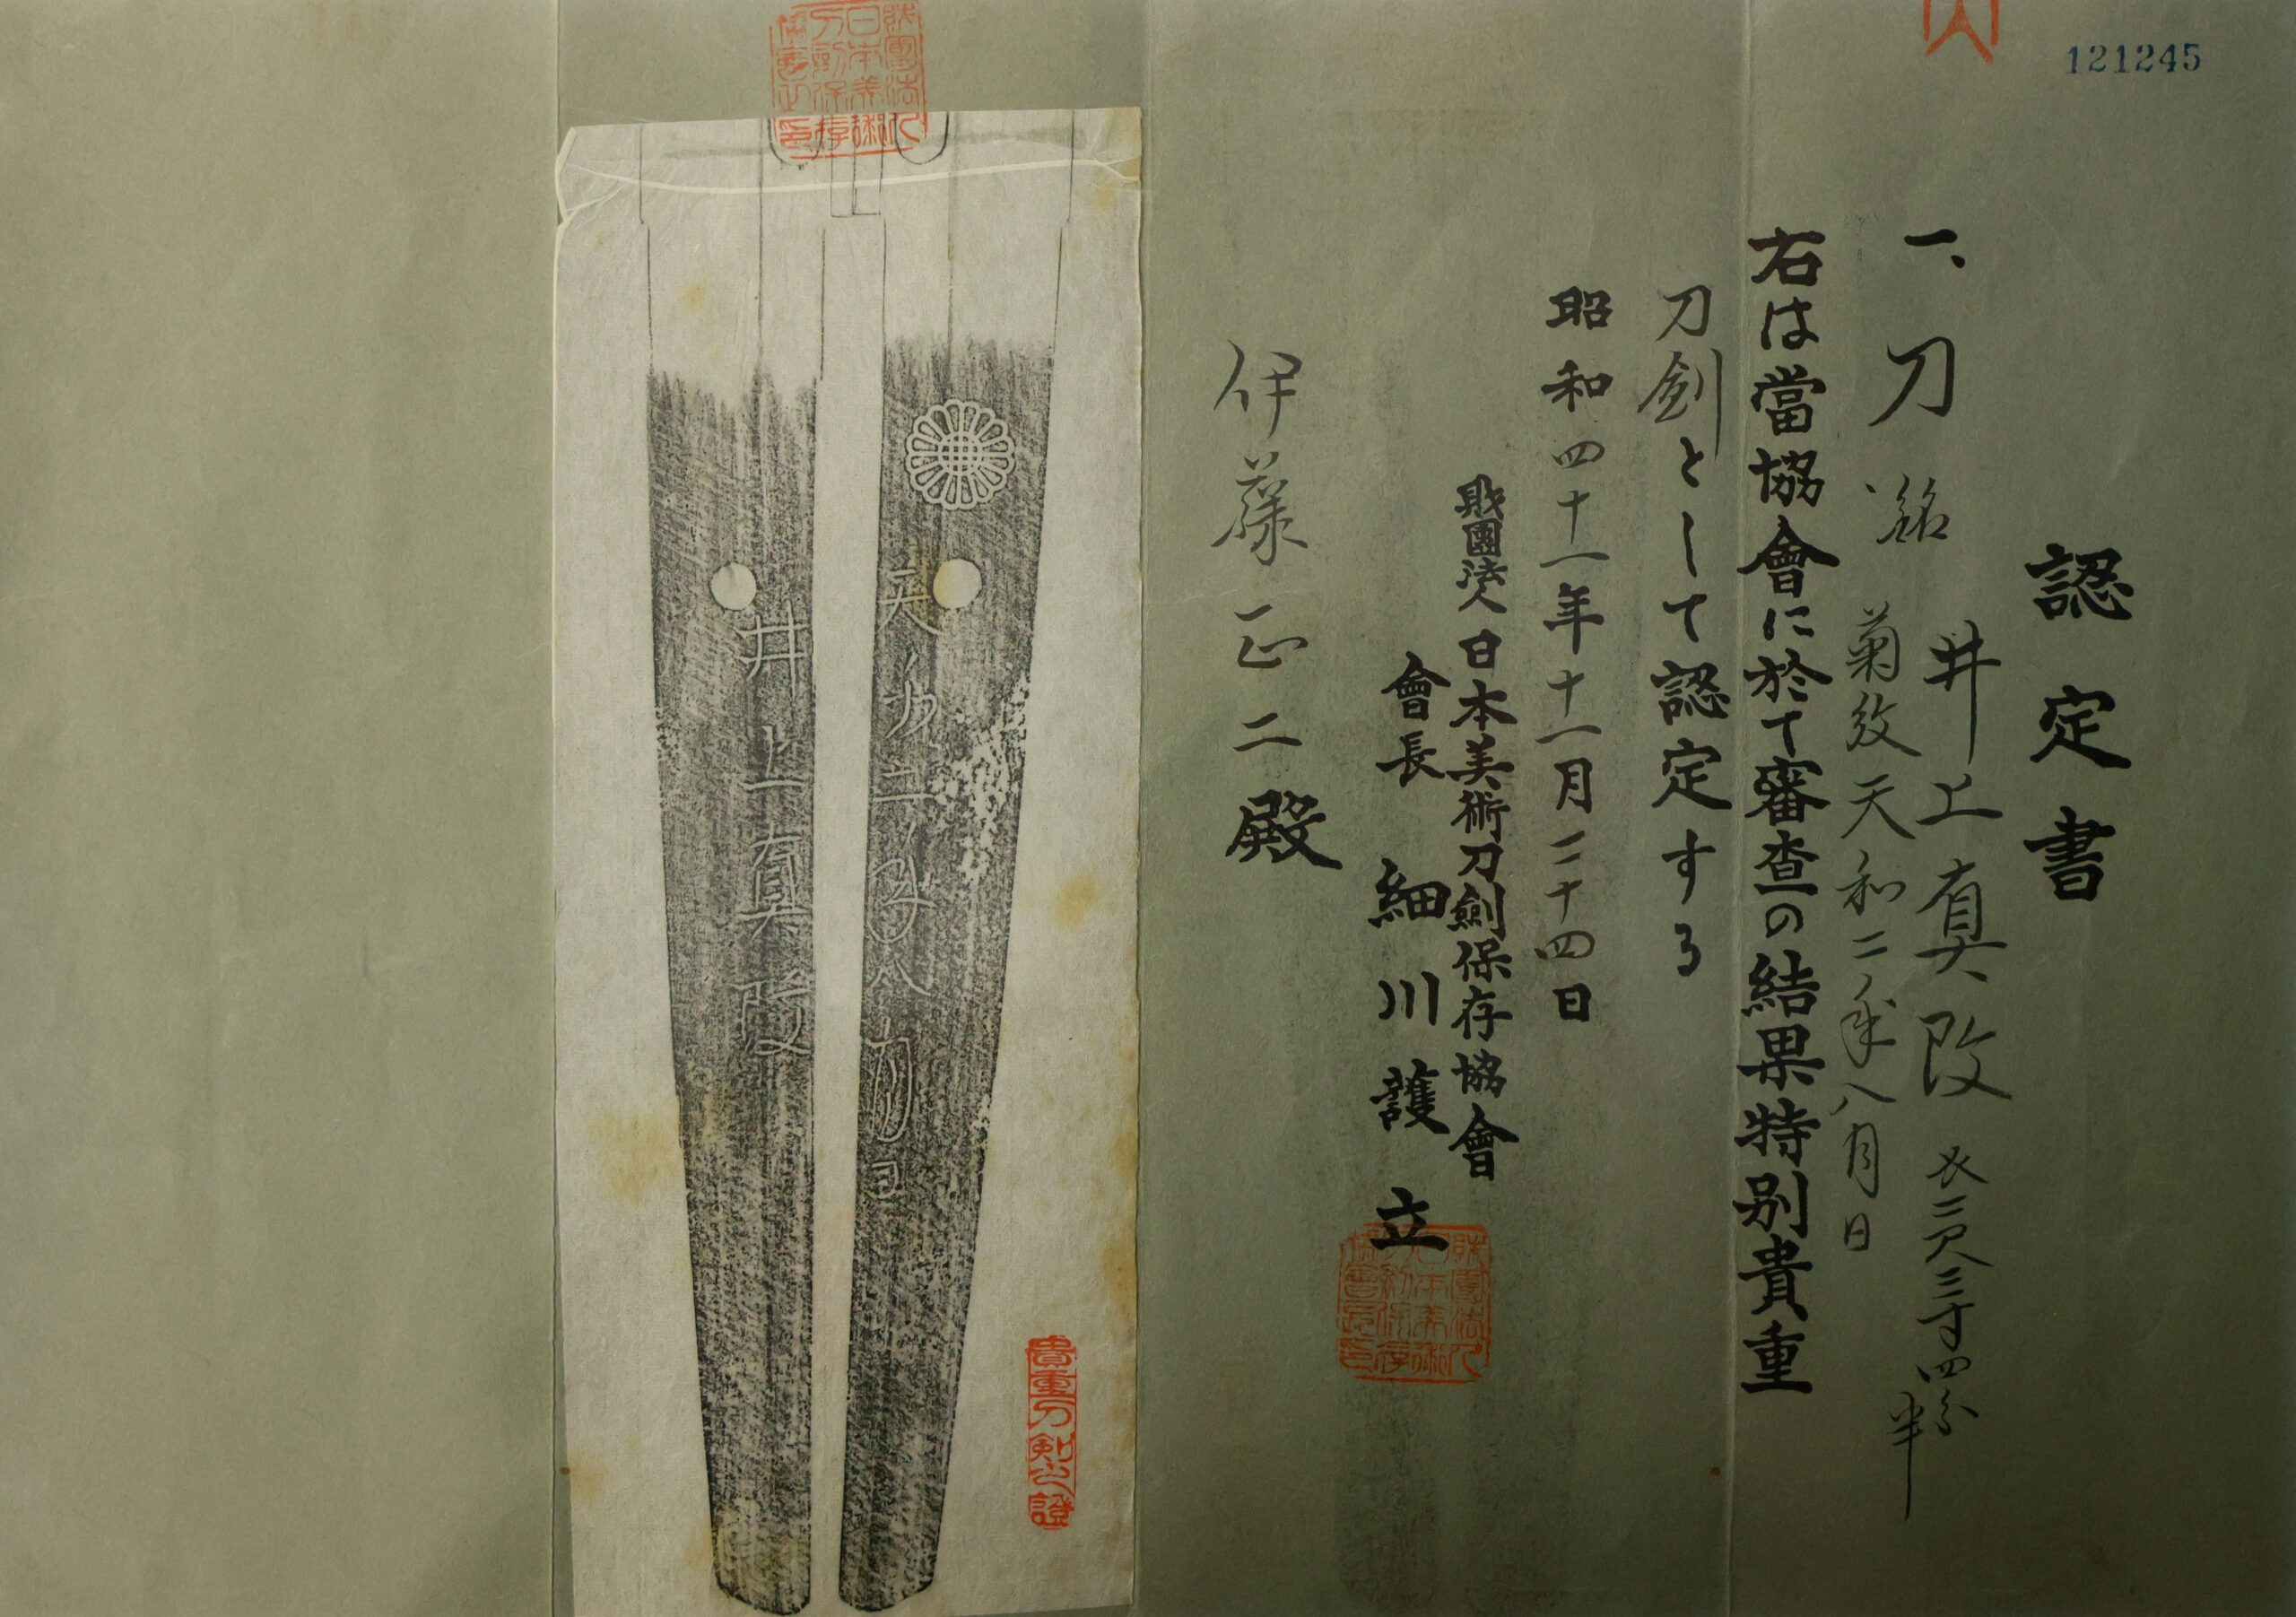 121245
認定書
一、刀 銘 井上真改 丈二尺三寸四分半
菊紋 天和二年八月日
右は當協會に於て審査の結果特別貴重
刀剣として認定する
昭和四十一年十一月二十四日
財團法人日本美術刀劍保存協會
會長 細川護立
伊藤正二殿
財團法人日本美術刀剣保存協會
天和二年八月日
井上真改
貴重刀剣之證